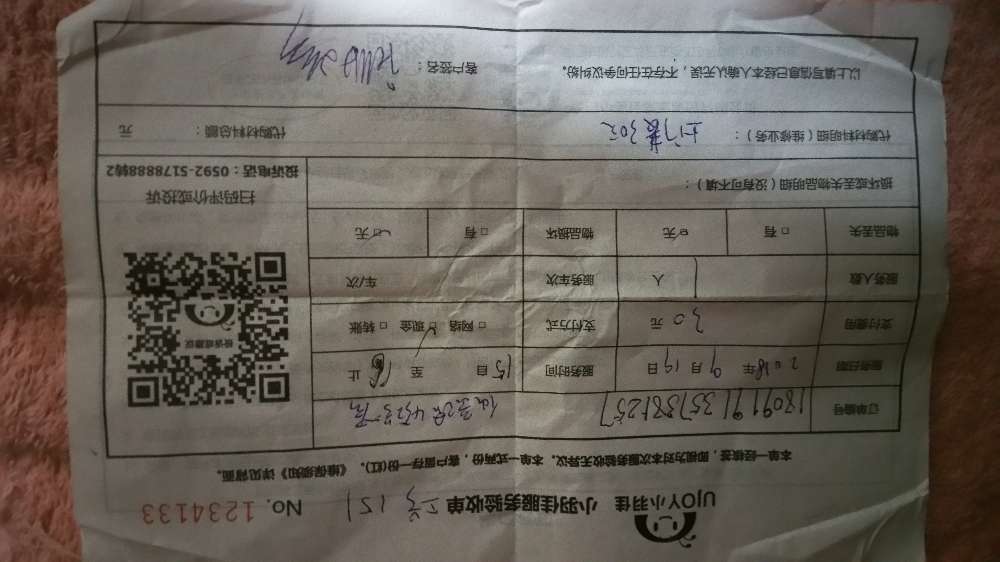 UJOY小羽佳 小羽佳服务验收单 No. 1234133
本单一经核签，即视为对本次服务验收无异议。本单一式两份，客户留存一份(红)。《维保须知》详见背面。
订单编号 18091191357881257
服务日期 2018年 9月19日 服务时间 15自 至 16止
支付费用 30 元 支付方式 □网络 □现金 □转账
服务人数 1 人 服务车次 车/次
物品丢失 □有 □无 物品损坏 □有 □无
维修或建议
扫码评价或投诉
投诉电话：0592-5178888转2
损坏或丢失物品明细（没有可不填）：
代购材料明细（维修业务）： 上门费30元 代购材料总额： 元
以上填写信息已经本人确认无误，不存在任何争议纠纷。 客户签名：